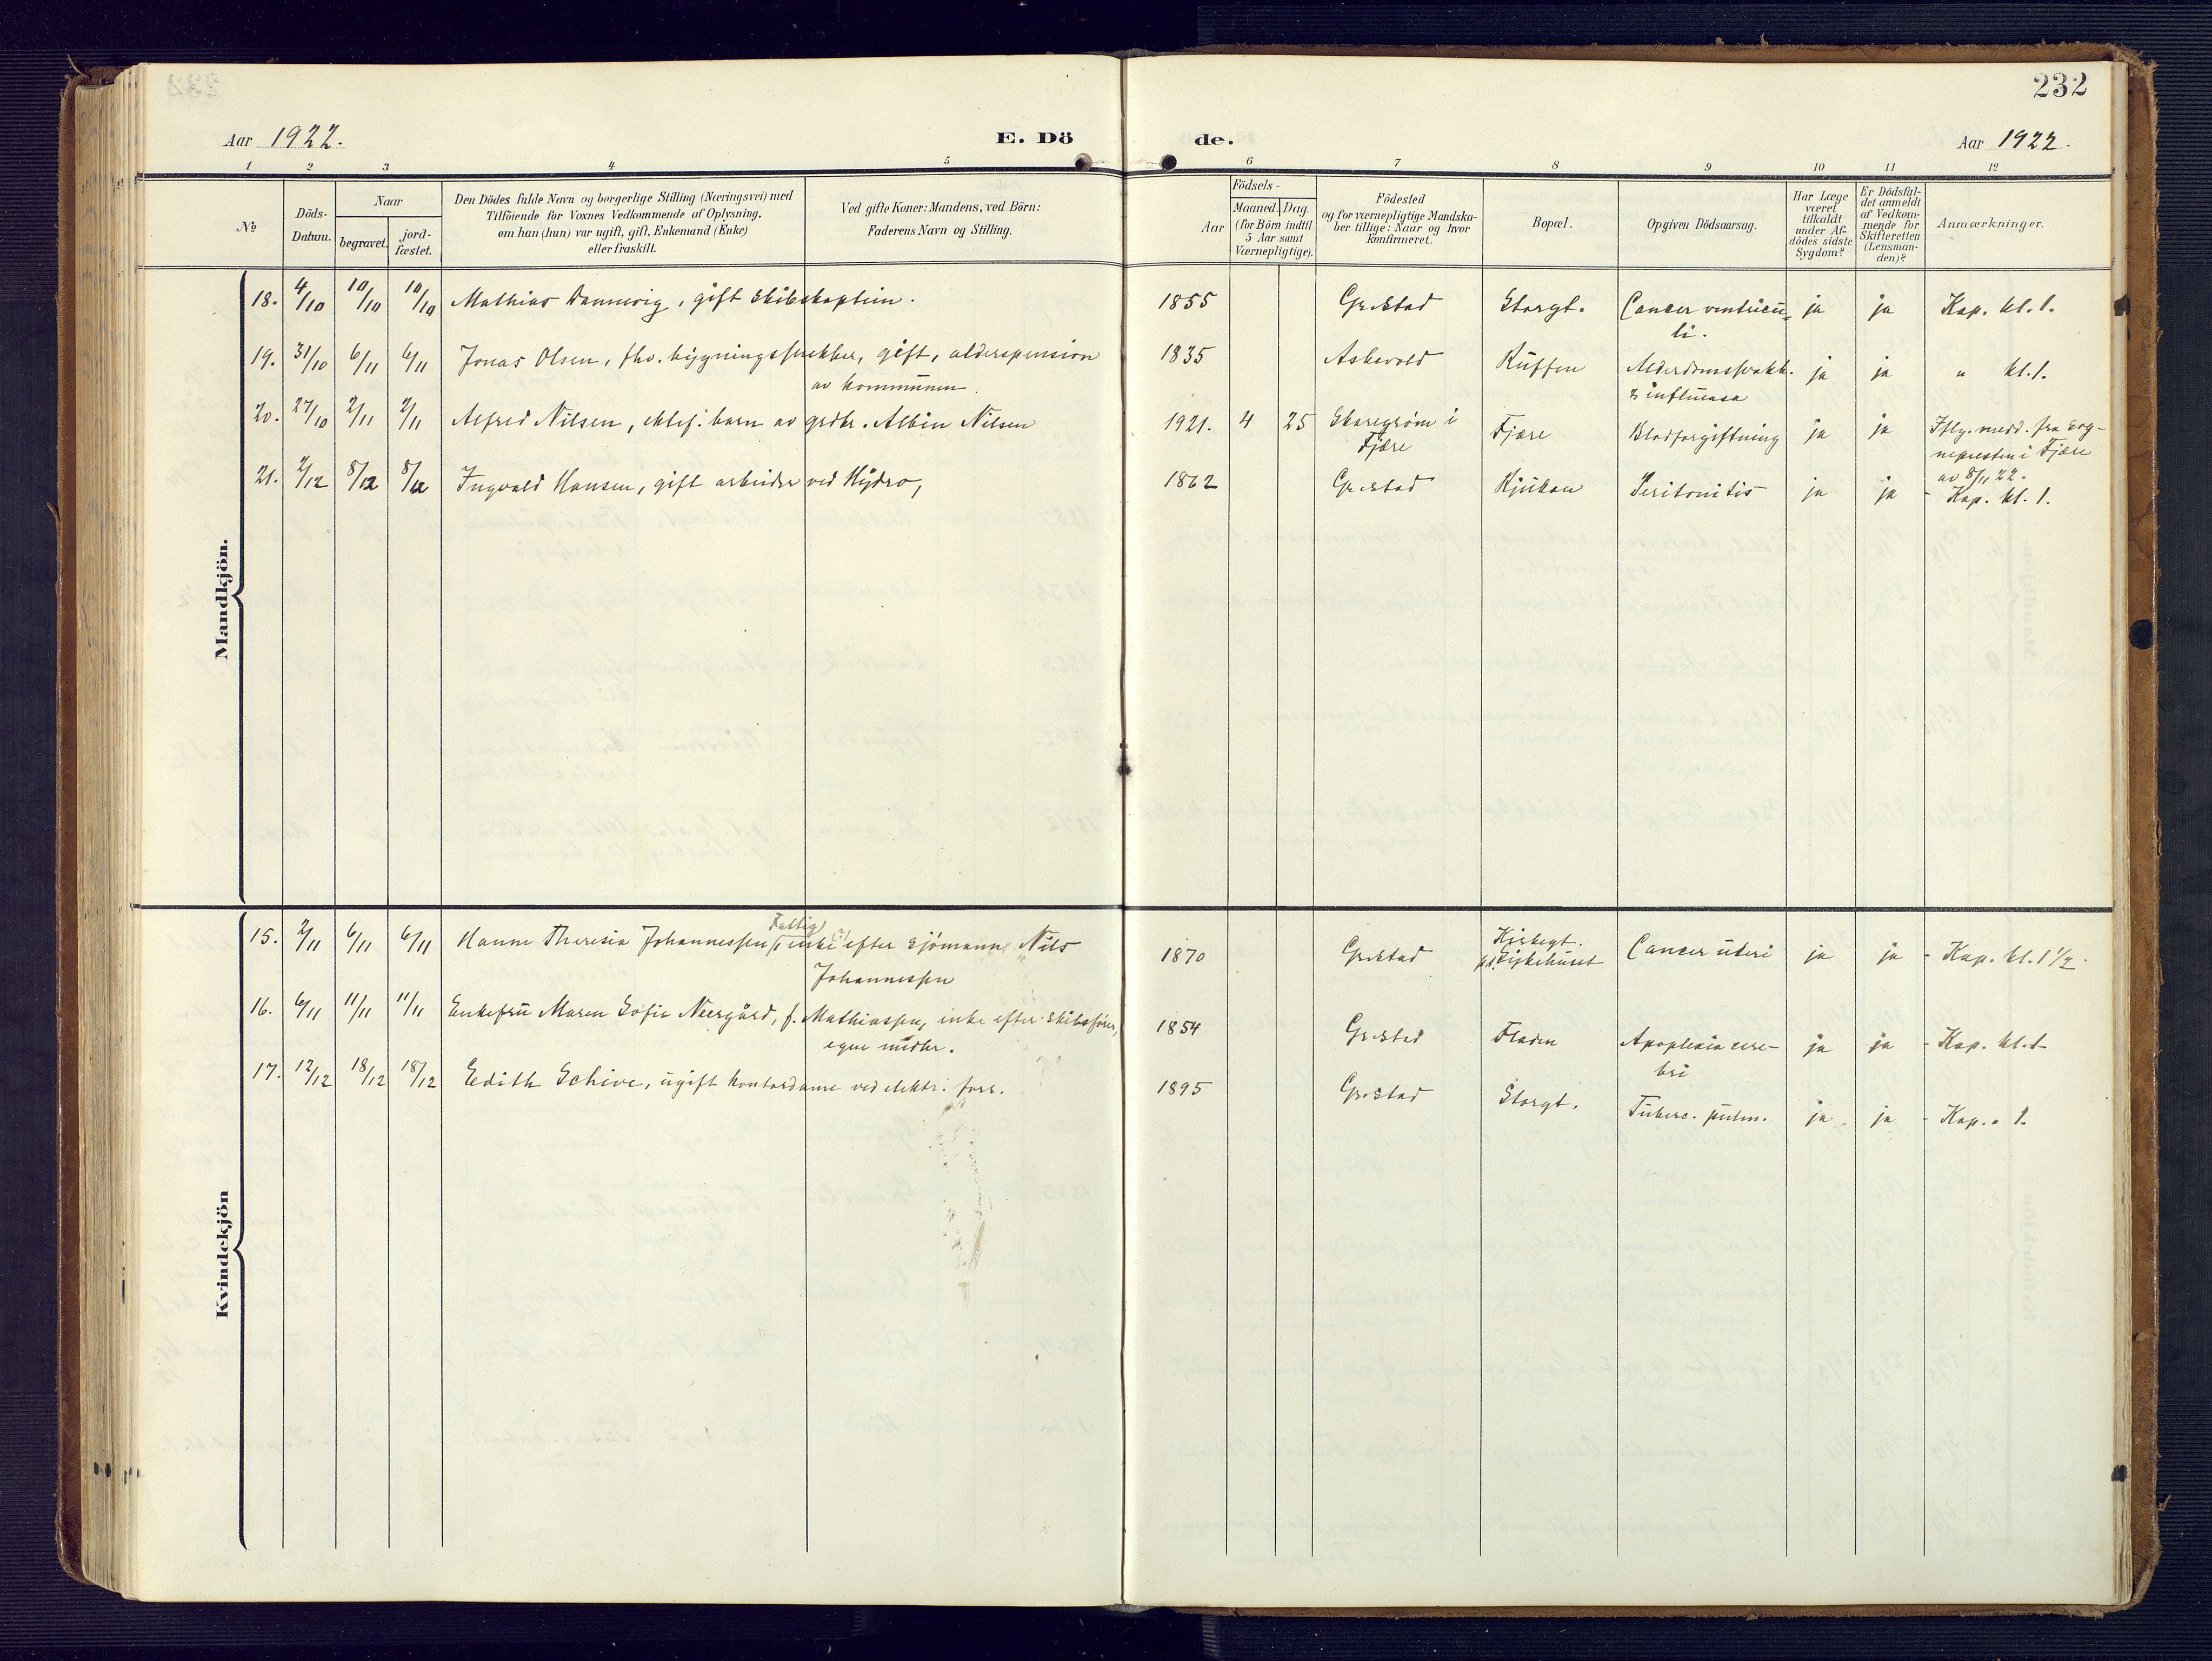 232
Aar 1922.
E. Dö de.
Aar 1922.
1 2 3 4 5 6 7 8 9 10 11 12
No
Döds-
Datum.
Naar
begravet.
jord-
fæstet.
Den Dödes fulde Navn og borgerlige Stilling (Næringsvei) med
Tilföiende for Voxnes Vedkommende af Oplysning,
om han (hun) var ugift, gift, Enkemand (Enke)
eller fraskilt.
Ved gifte Koner: Mandens, ved Börn:
Faderens Navn og Stilling.
Födsels-
Aar
Maaned. Dag.
(for Börn indtil
5 Aar samt
Værnepligtige).
Födested
og for værnepligtige Mandska-
ber tillige: Naar og hvor
konfirmeret.
Bopæl.
Opgiven Dödsaarsag.
Har Læge
været
tilkaldt
under Af-
dödes sidste
Sygdom?
Er Dödsfal-
det anmeldt
af Vedkom-
mende for
Skifteretten
(Lensman-
den)?
Anmærkninger.
Mandkjön.
18. 4/10 10/10 10/10 Mathias Dannevig, gift skibskaptein. 1855 Gr.stad Storgt. Cancer ventricu-
li. ja ja Kap. kl. 1.
19. 31/10 6/11 6/11 Jonas Olsen, fhv. bygningssnekker, gift, alderspension
av kommunen. 1835 Askevold Ruffen Alderdomssvakk.
& influensa ja ja " kl. 1.
20. 27/10 2/11 2/11 Alfred Nilsen, ektef. barn av grdbr. Albin Nilsen 1921. 4 25 Skaregrøm i
Fjære Fjære Blodforgiftning ja ja Iflg. medd. fra sog-
nepresten i Fjære
av 8/11 22.
21. 2/12 8/12 8/12 Ingvald Hansen, gift arbeider ved Hydro, 1862 Gr.stad Rjukan Peritonitis ja ja - Kap. kl. 1.
Kvindekjön
15. 2/11 6/11 6/11 Hanne Theresia Johannessen, Fattig enke efter sjömann Nils
Johannessen 1870 Gr.stad Kirkegt.
p.t. Sykehuset Cancer uteri ja ja - Kap. kl. 1 1/2.
16. 6/11 11/11 11/11 Enkefru Maren Sofie Neergård, f. Mathiassen, enke efter skibsfører,
egne midler. 1854 Gr.stad Fladen Apoplexia cere-
bri ja ja - Kap. kl. 1
17. 12/12 18/12 18/12 Edith Schive, ugift kontordame ved elektr. forr. 1895 Gr.stad Storgt. Tuberc. pulm. ja ja - Kap. " 1.